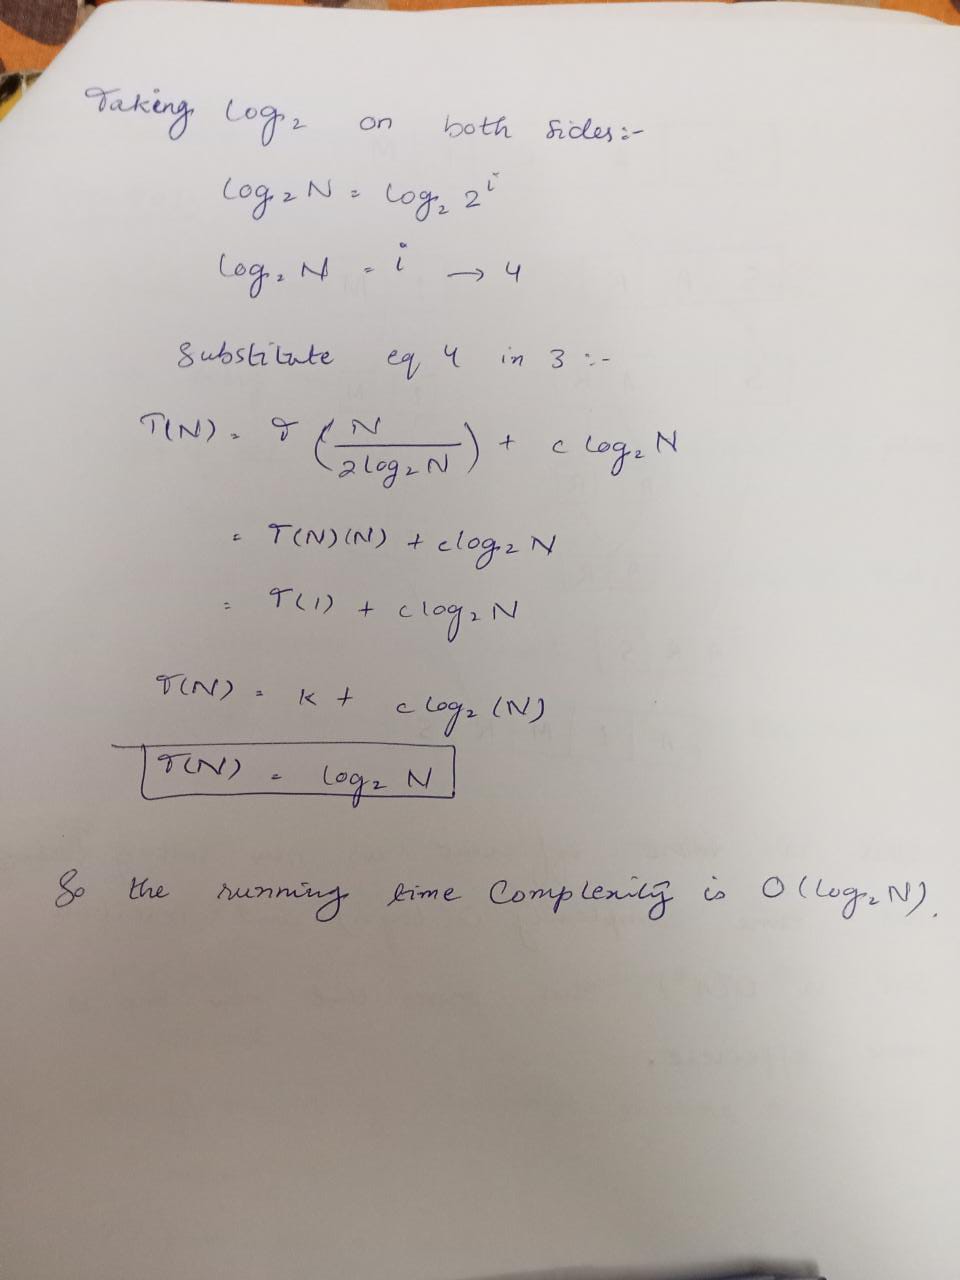 Taking log₂ on both sides :-
log₂ N = log₂ 2ⁱ
log₂ N = i → 4
Substitute eq 4 in 3 :-
T(N) = T (N / 2 log₂ N) + c log₂ N
= T(N)(N) + c log₂ N
= T(1) + c log₂ N
T(N) = k + c log₂ (N)
T(N) = log₂ N
So the running time Complexity is O(log₂ N).